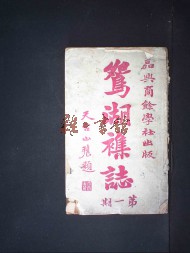 品興商餘學社出版
鴛湖襍誌
天台山農題
第一期